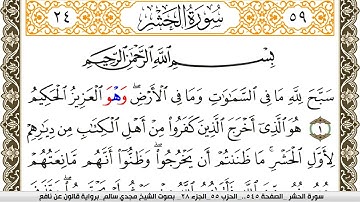 ٢٤ سُورَةُ الحَشْرِ ٥٩
بِسْمِ اللَّهِ الرَّحْمَٰنِ الرَّحِيمِ
سَبَّحَ لِلَّهِ مَا فِي السَّمَٰوَٰتِ وَمَا فِي الْأَرْضِ وَهْوَ الْعَزِيزُ الْحَكِيمُ
١ هُوَ الَّذِي أَخْرَجَ الَّذِينَ كَفَرُوا مِنْ أَهْلِ الْكِتَٰبِ مِن دِيَٰرِهِمْ
لِأَوَّلِ الْحَشْرِ مَا ظَنَنتُمْ أَن يَخْرُجُوا وَظَنُّوا أَنَّهُم مَّانِعَتُهُمْ
سورة الحشر_ الصفحة ٥٤٥_ الحزب ٥٥_ الجزء ٢٨_ بصوت الشيخ مجدي سالم_ برواية قالون عن نافع